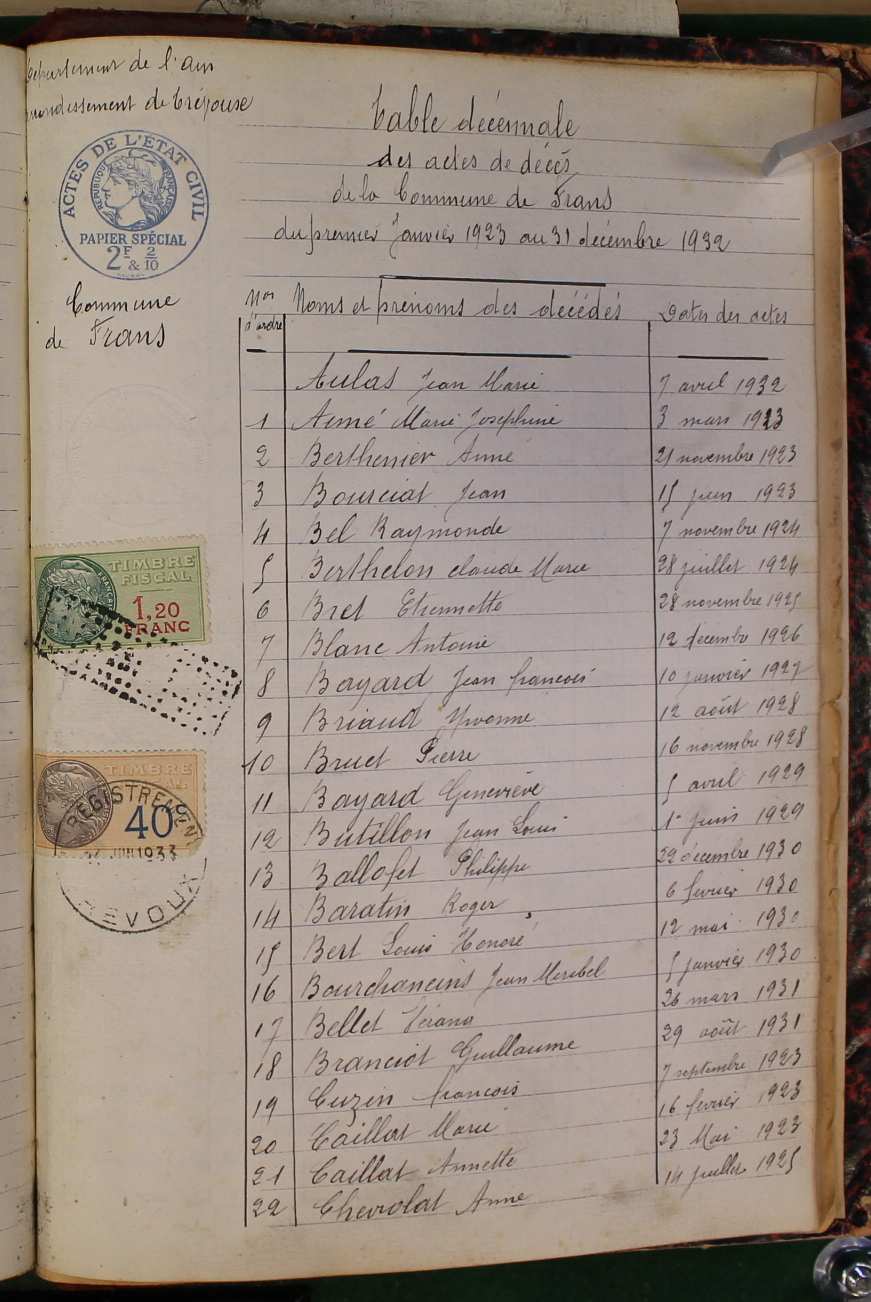 Département de l'ain
arrondissement de Trévouse
ACTES DE L'ETAT CIVIL
RÉPUBLIQUE FRANÇAISE
PAPIER SPÉCIAL
2F & 2/10
Commune
de Frans
Table décennale
des actes de décès
de la Commune de Frans
du premier Janvier 1923 au 31 décembre 1932
Nos d'ordre Noms et prénoms des décédés Dates des actes
Aulas Jean Marie 7 avril 1932
1 Aimé Marie Josephine 3 mars 1923
2 Berthenier Anne 21 novembre 1923
3 Bourciat Jean 15 juin 1923
4 Bel Raymonde 7 novembre 1924
5 Berthelon claude Marie 28 juillet 1924
6 Bret Etiennette 28 novembre 1925
7 Blanc Antoine 12 decembre 1926
8 Bayard Jean francois 10 janvier 1927
9 Briaud Yvonne 12 août 1928
10 Bruet Pierre 16 novembre 1928
11 Bayard Geneviève 5 avril 1929
12 Butillon Jean Louis 1er juin 1929
13 Ballofet Philippe 22 décembre 1930
14 Baratin Roger 6 fevrier 1930
15 Bert Louis Honoré 12 mai 1930
16 Bourchanins Jean 5 janvier 1930
17 Bellet 26 mars 1931
18 Branciot Guillaume 29 août 1931
19 Cuzin francois 7 septembre 1923
20 Caillat Marie 16 fevrier 1923
21 Caillat Annette 23 Mai 1923
22 Chevrolat Anne 14 juillet 1925
TIMBRE
FISCAL
1,20
FRANC
TIMBRE
FISCAL
40c
ENREGISTREMENT
JUIN 1933
TREVOUX